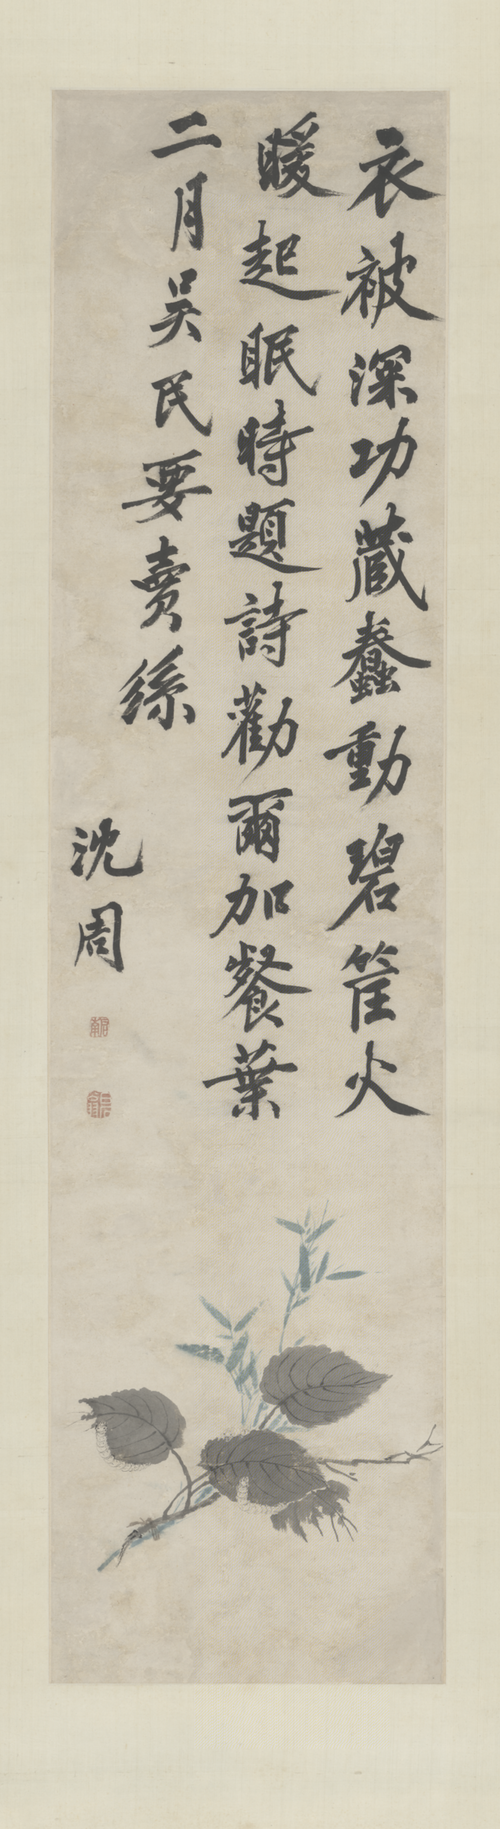 衣被深功藏蠢動碧筐火
暖起眠時題詩勸爾加餐葉
二月吳民要賣絲
沈周